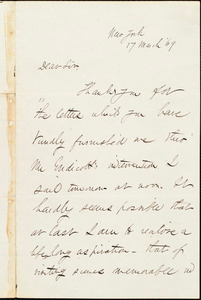 New York
17 March '69
Dear Sir,
Thank you for
the letters which you have
kindly furnished me thro'
Mr Endicott's intervention. I
sail tomorrow at noon. It
hardly seems possible that
at last I am to realize a
life long aspiration — that of
visiting scenes memorable